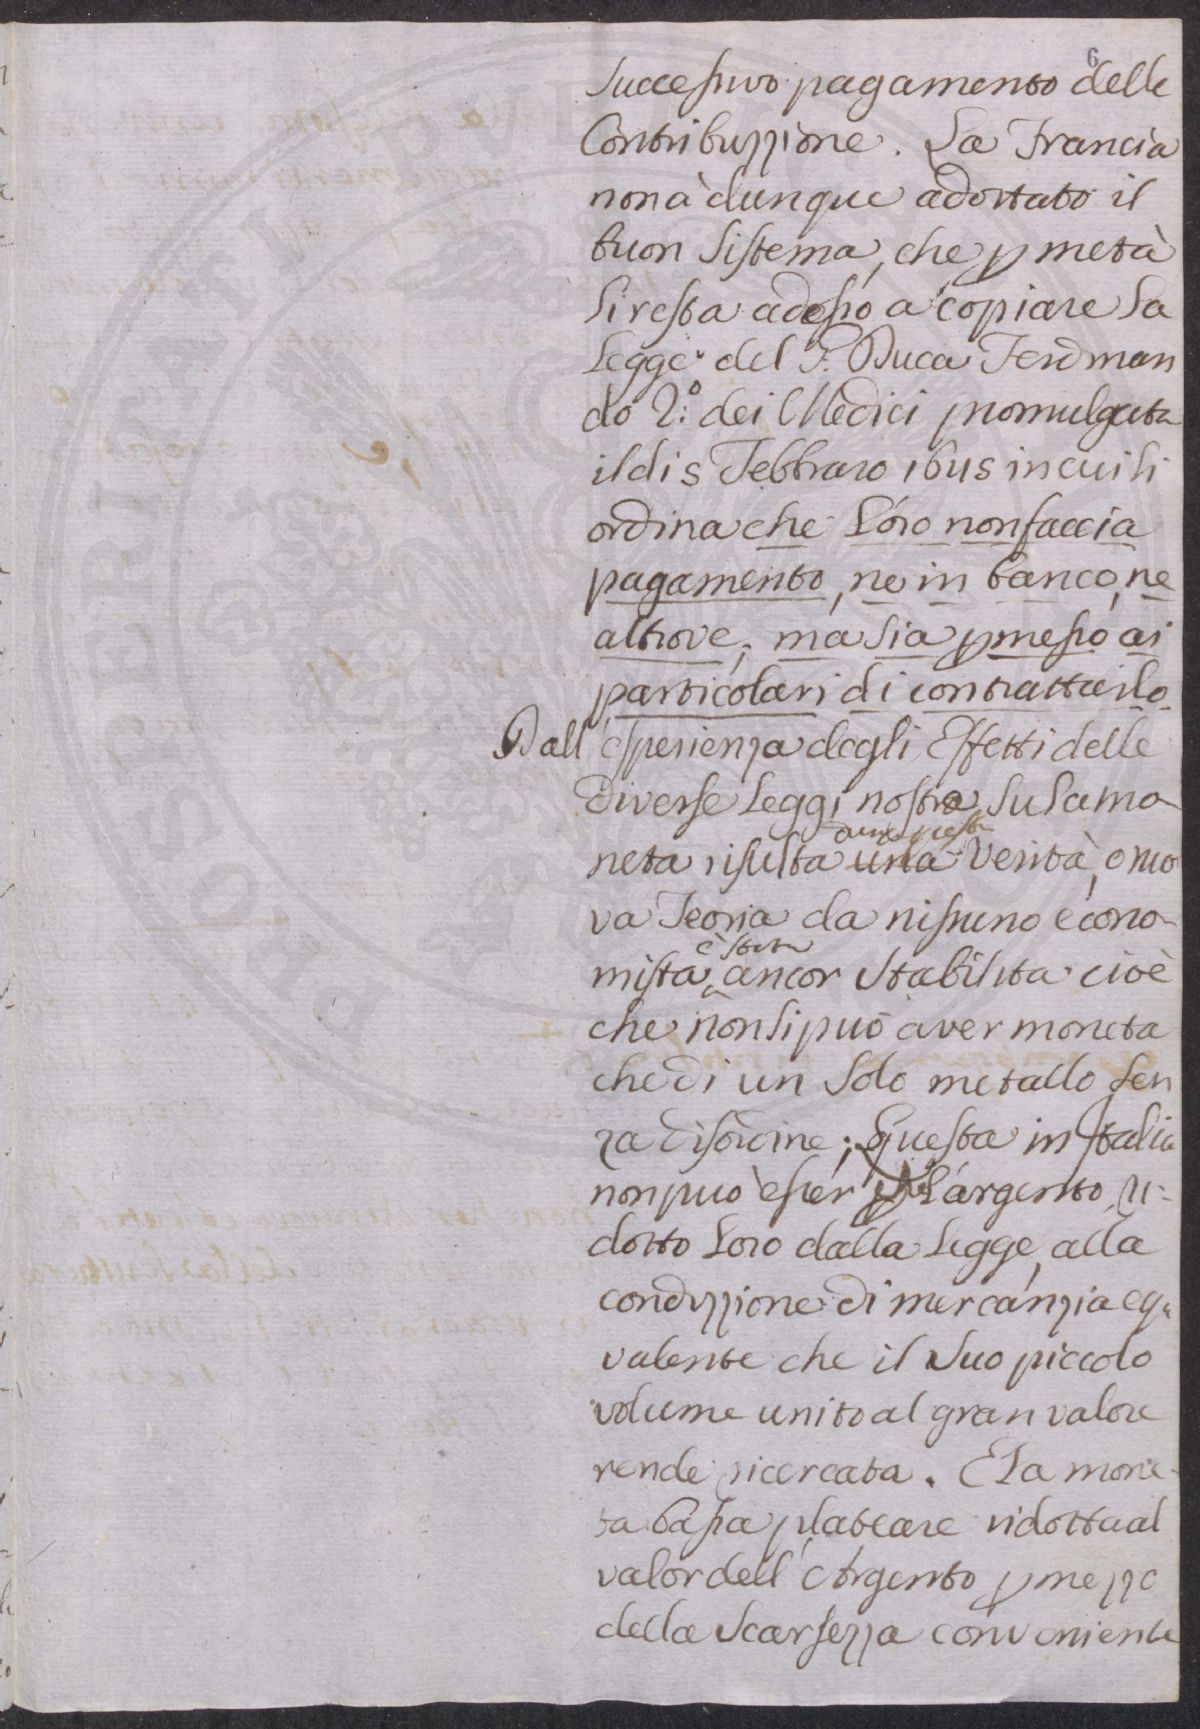 6
successivo pagamento delle
Contribuzzione. La Francia
non à dunque adottato il
buon sistema, che p metà
li resta adesso a copiare la
Legge del G. Duca Ferdinan
do 2.º dei Medici promulgata
il di 5 Febbraro in cui si
ordina che l'oro non faccia
pagamento, ne in banco, ne
altrove, ma sia pmesso ai
particolari di contrattarlo
Dall'esperienza degli Effetti delle
diverse Leggi nostre sulamo
neta risulta una verità, o nuo
va Teoria da nissuno econo
è stata
mista ancor stabilita cioè
che non si può aver moneta
che di un solo metallo sen
za disordine; Questa in Italia
non può esser che l'argento, ri=
dotto l'oro dalla Legge, alla
condizzione di mercanzia equi
valente che il suo piccolo
volume unito al gran valore
rende ricercata. E la mone
ta bassa plateare ridotta al
valor dell'Argento p mezzo
della scarsezza conveniente